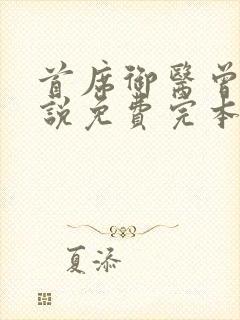 首席御醫曾
說免費完本
夏添